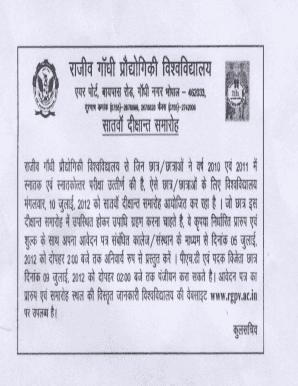 राजीव गाँधी प्रौद्योगिकी विश्वविद्यालय
एयर पोर्ट, बायपास रोड, गाँधी नगर भोपाल – 462033,
सातवाँ दीक्षान्त समारोह
राजीव गाँधी प्रौद्योगिकी विश्वविद्यालय से जिन छात्र/छात्राओं ने वर्ष 2010 एवं 2011 में
स्नातक एवं स्नातकोत्तर परीक्षा उत्तीर्ण की है, ऐसे छात्र/छात्राओं के लिए विश्वविद्यालय
मंगलवार, 10 जुलाई, 2012 को सातवाँ दीक्षान्त समारोह आयोजित कर रहा है । जो छात्र इस
दीक्षान्त समारोह में उपस्थित होकर उपाधि ग्रहण करना चाहते है, वे कृपया निर्धारित प्रारूप एवं
शुल्क के साथ अपना आवेदन पत्र संबंधित कालेज/संस्थान के माध्यम से दिनांक 05 जुलाई,
2012 को दोपहर 2:00 बजे तक अनिवार्य रुप से प्रस्तुत करें । पीएच.डी एवं पदक विजेता छात्र
दिनांक 09 जुलाई, 2012 को दोपहर 02:00 बजे तक पंजीयन करा सकते है। आवेदन पत्र का
प्रारुप एवं समारोह स्थल की विस्तृत जानकारी विश्वविद्यालय की वेबसाइट www.rgpv.ac.in
पर उपलब्ध है।
कुलसचिव